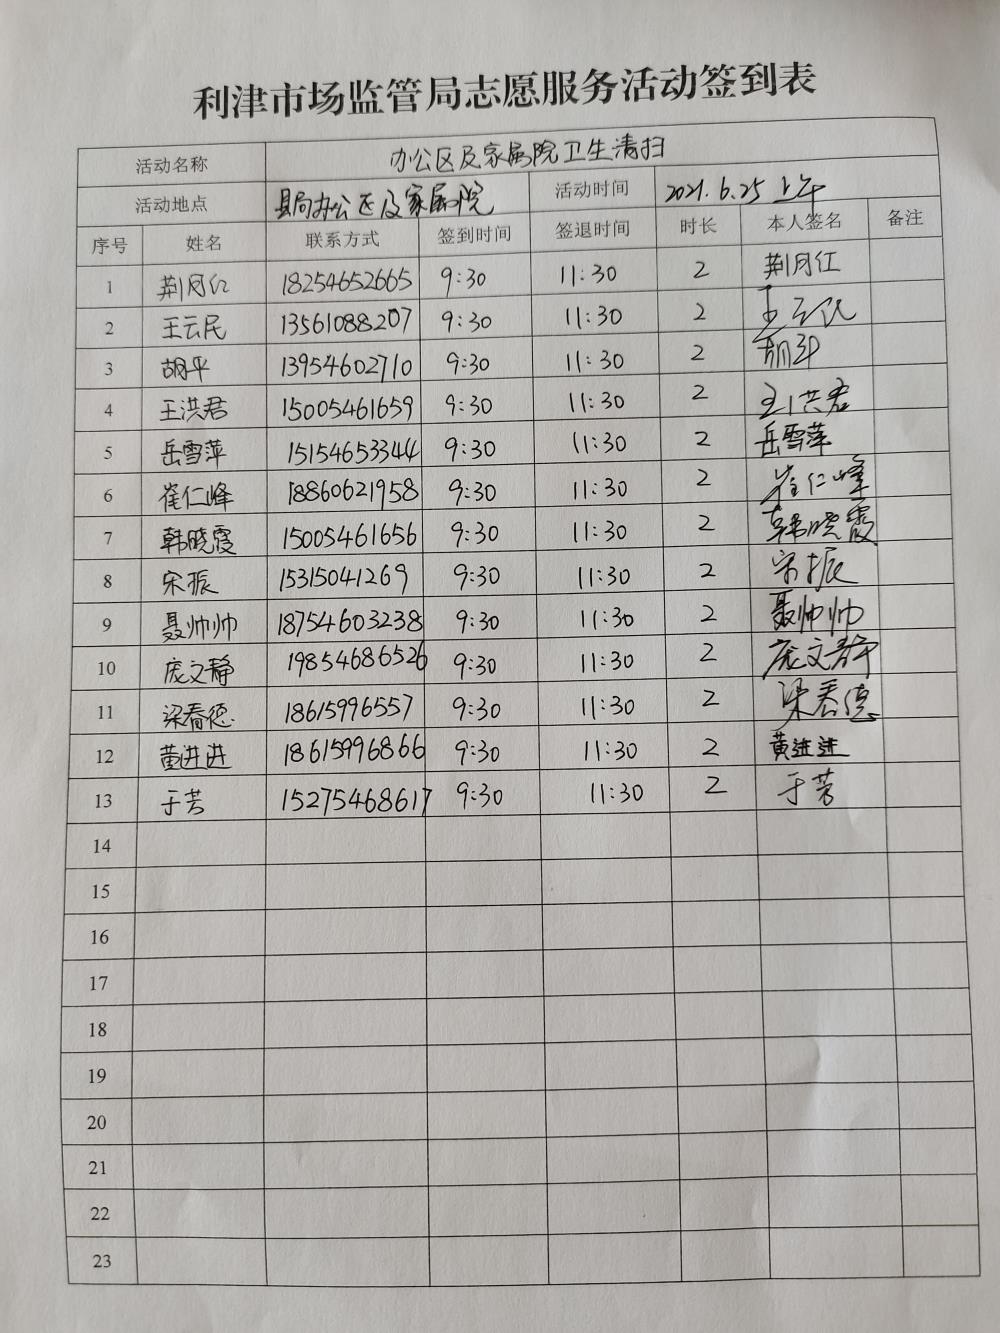 利津市场监管局志愿服务活动签到表
活动名称 办公区及家属院卫生清扫
活动地点 县局办公区及家属院 活动时间 2021.6.25 上午
序号 姓名 联系方式 签到时间 签退时间 时长 本人签名 备注
1 荆月红 18254652665 9:30 11:30 2 荆月红
2 王云民 13561088207 9:30 11:30 2 王云民
3 胡平 13954602710 9:30 11:30 2 胡平
4 王洪君 15005461659 9:30 11:30 2 王洪君
5 岳雪萍 15154653344 9:30 11:30 2 岳雪萍
6 崔仁峰 18860621958 9:30 11:30 2 崔仁峰
7 韩晓霞 15005461656 9:30 11:30 2 韩晓霞
8 宋振 15315041269 9:30 11:30 2 宋振
9 聂帅帅 18754603238 9:30 11:30 2 聂帅帅
10 庞文静 19854686526 9:30 11:30 2 庞文静
11 梁春德 18615996557 9:30 11:30 2 梁春德
12 黄进进 18615996866 9:30 11:30 2 黄进进
13 于芳 15275468617 9:30 11:30 2 于芳
14
15
16
17
18
19
20
21
22
23